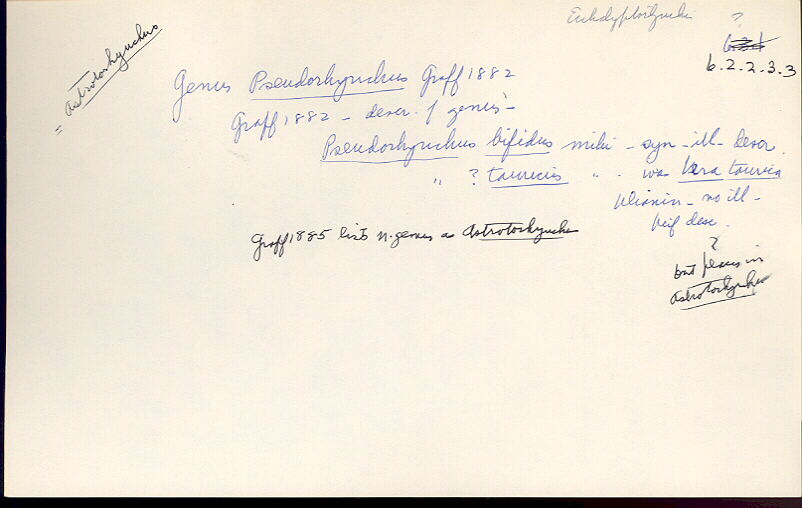 ?
6.2.2.3.3
= Astrotorhynchus
Genus Pseudorhynchus Graff 1882
Graff 1882 - descr. of genus -
Pseudorhynchus bifidus mihi - syn - ill - descr.
" ? tauricus " . was taurica
no ill -
desc.
?
Graff 1885 lists n. genus as Astrotorhynchus
but places in
Astrotorhynchus